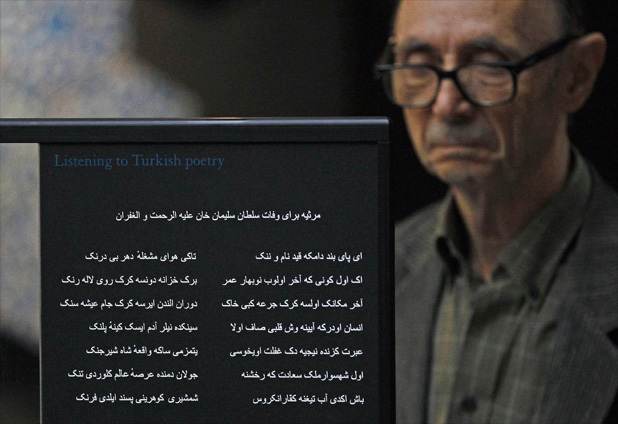 Listening to Turkish poetry
مرثیه برای وفات سلطان سلیمان خان علیه الرحمت و الغفران
ای پای بند دامکه قید نام و ننک تاکی هوای مشغلهٔ دهر بی درنک
اک اول کونی که آخر اولوب نوبهار عمر برک خزانه دونسه کرک روی لاله رنک
آخر مکانک اولسه کرک جرعه کبی خاک دوران الندن ایرسه کرک جام عیشه سنک
انسان اودرکه آیینه وش قلبی صاف اولا سینکده نیلر آدم ایسک کینهٔ پلنک
عبرت کزنده نیجیه دک غفلت اویخوسی یتمزمی ساکه واقعهٔ شاه شیرجنک
اول شهسوارملک سعادت که رخشنه جولان دمنده عرصهٔ عالم کلوردی تنک
باش اکدی آب تیغنه کفارانکروس شمشیری کوهرینی پسند ایلدی فرنک